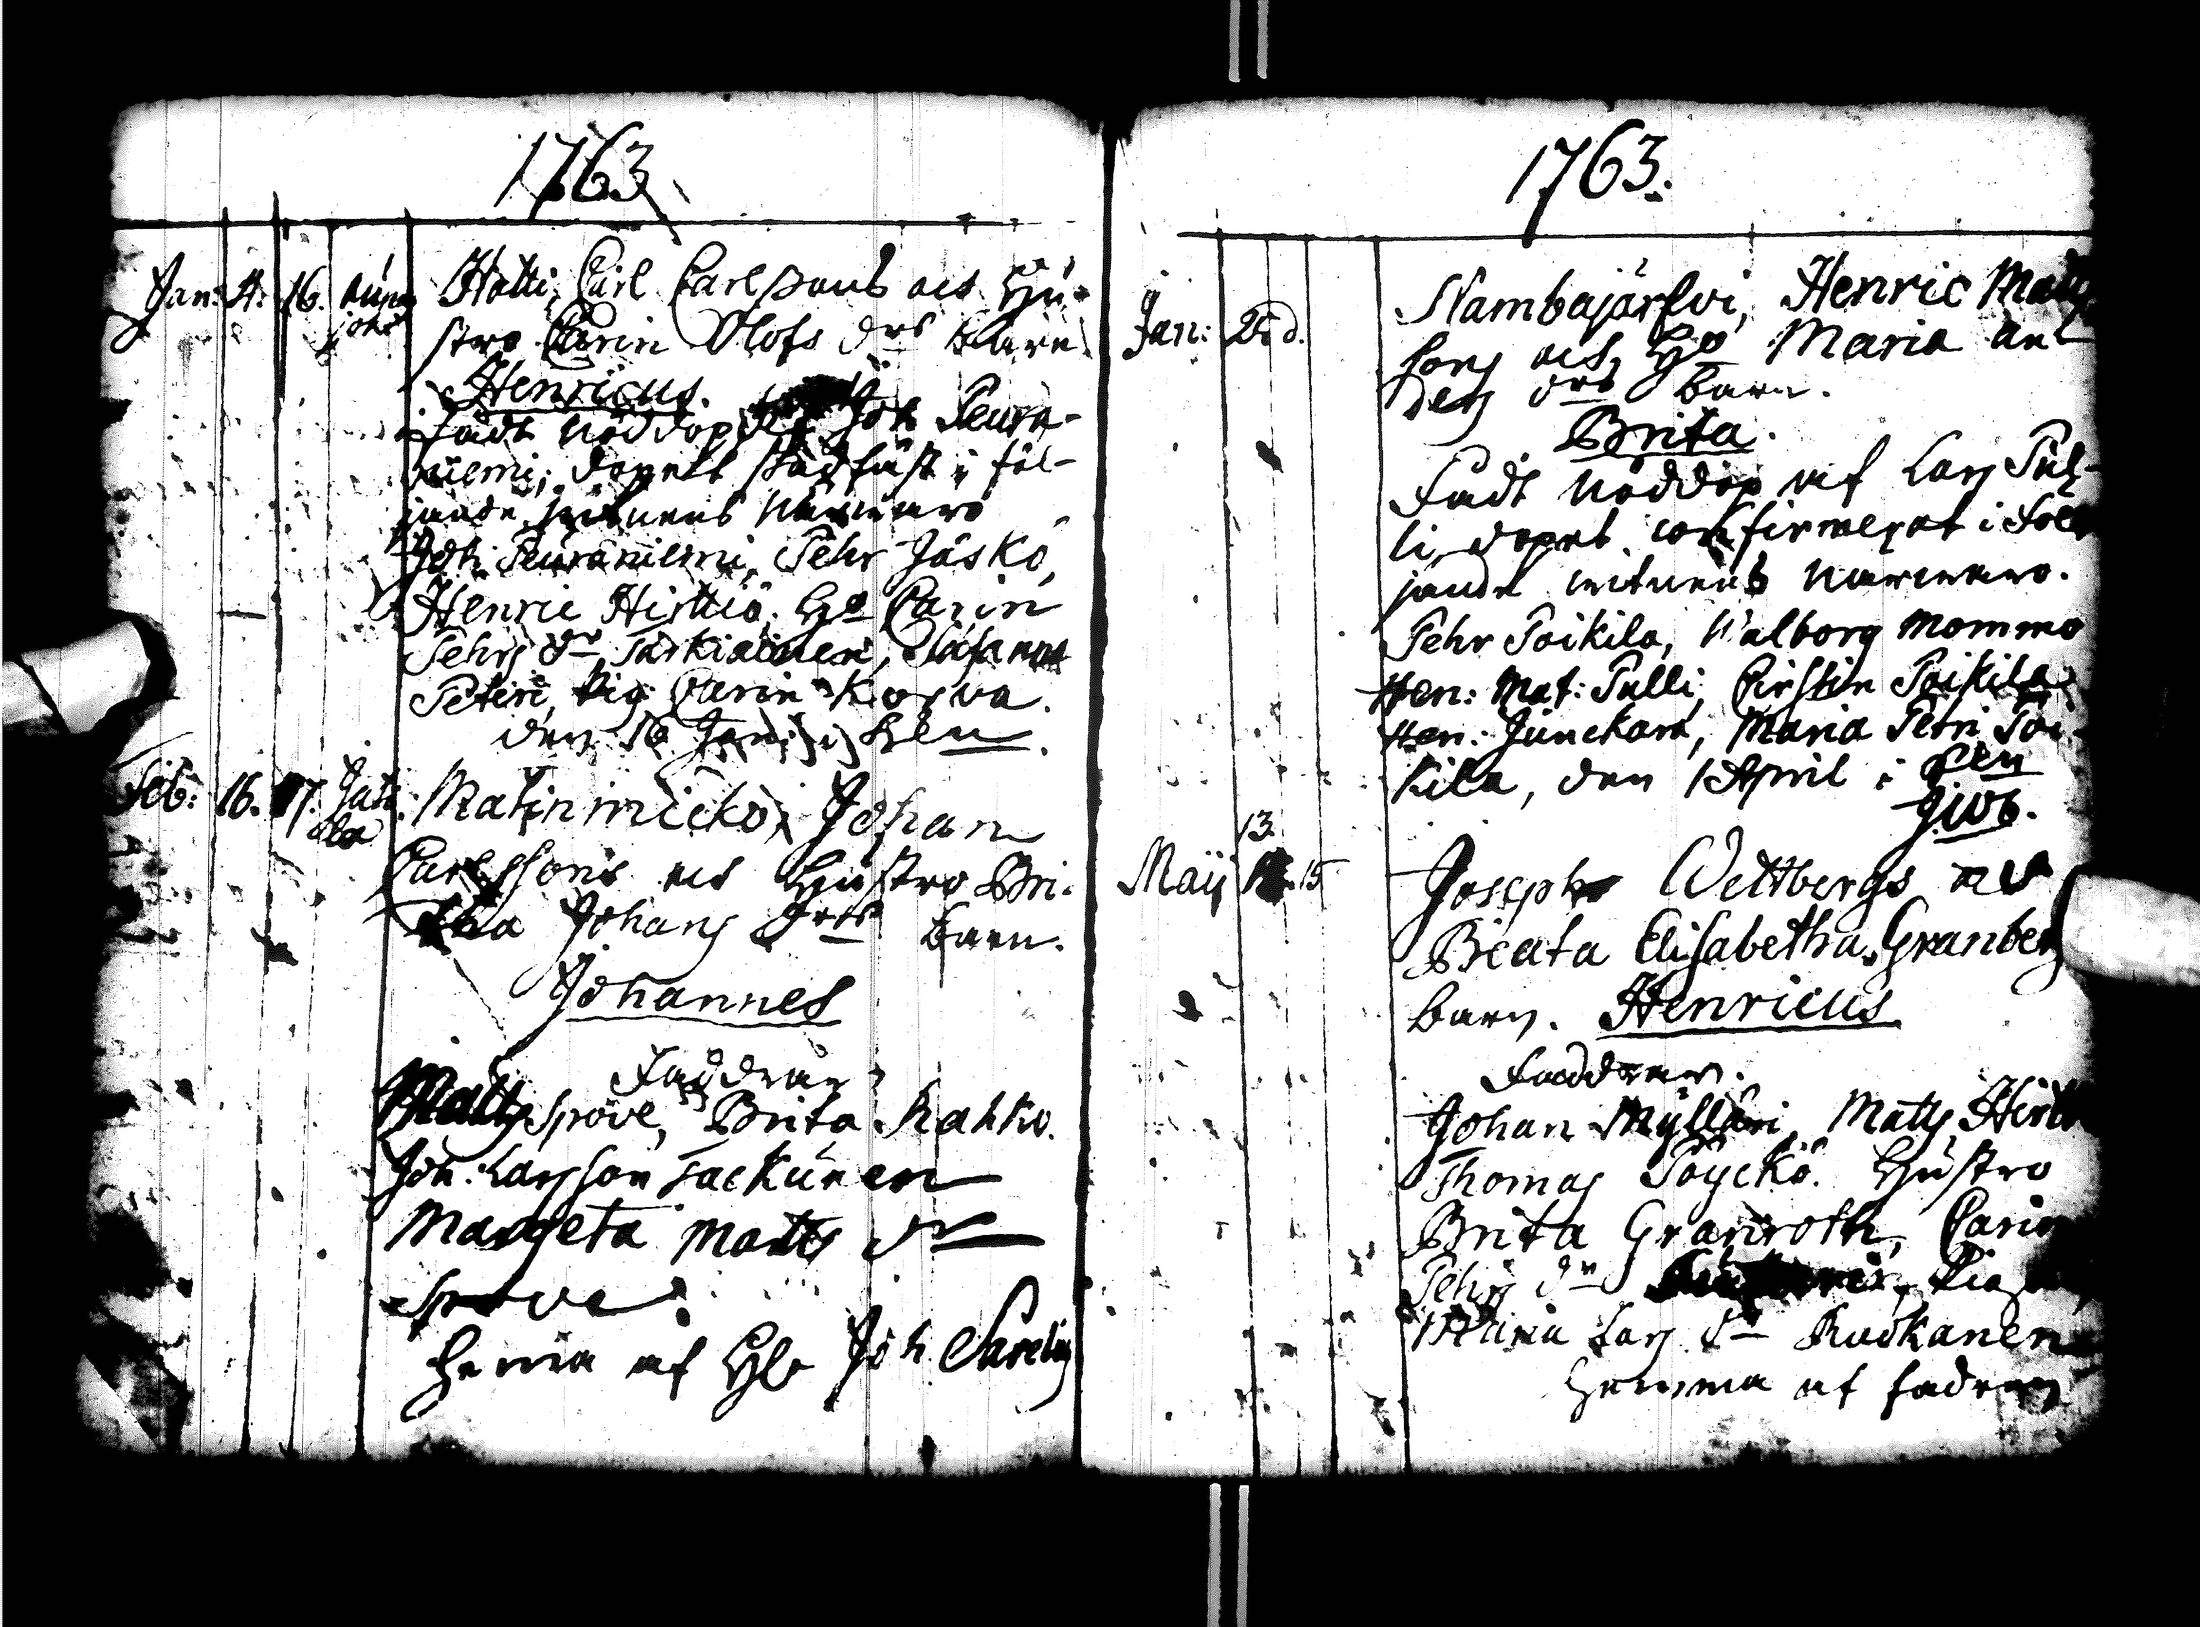 1763
Jan: 4. 16. Hatti, Carl Carlssons ock Hu-
stro Carin Olofs drs barn
Henricus.
fådt nöddop af Joh Peura-
niemi; dopet stadfäst i föl-
jande witnens närwaro
Joh: Peuraniemi, Pehr Jäskö,
Henric Hirttiö, Ho Carin
Pehrs dr Tarkiainen,
Peteri, Pig: Carin Korva.
den 16 Jan: i
Feb: 16. 17. Matinmickö, Johan
Carlssons ock Hustro Bri-
ta Johans drs barn.
Johannes
Faddrar
Matts Spove, Brita Rahko.
Joh: Larsson Tackunen
Margeta Matts dr
Spove
hemma af
1763.
Jan: 25 d. Nambajärfvi, Henric Matts
sons ock Ho Maria An
ders drs barn.
Brita.
Fådt nöddop af Lars Pul-
li, dopet confirmerat i föl
jande witnens närwaro.
Pehr Poikila, Walborg Mommo
Hen: Mat: Pulli, Cirstin Poikila
Hen: Junckara, Maria Petri Poi-
kila, den 1 April i
13
Maij 15 Joseph Wettbergs ock
Beata Elisabetha Granberg
barn. Henricus
Faddrar.
Johan Mylläri, Matts Hirt
Thomas Pöyckö. Hustro
Brita Granroth, Carin
Pehrs dr
Maria Lars dr Ruokanen
hemma af fadren